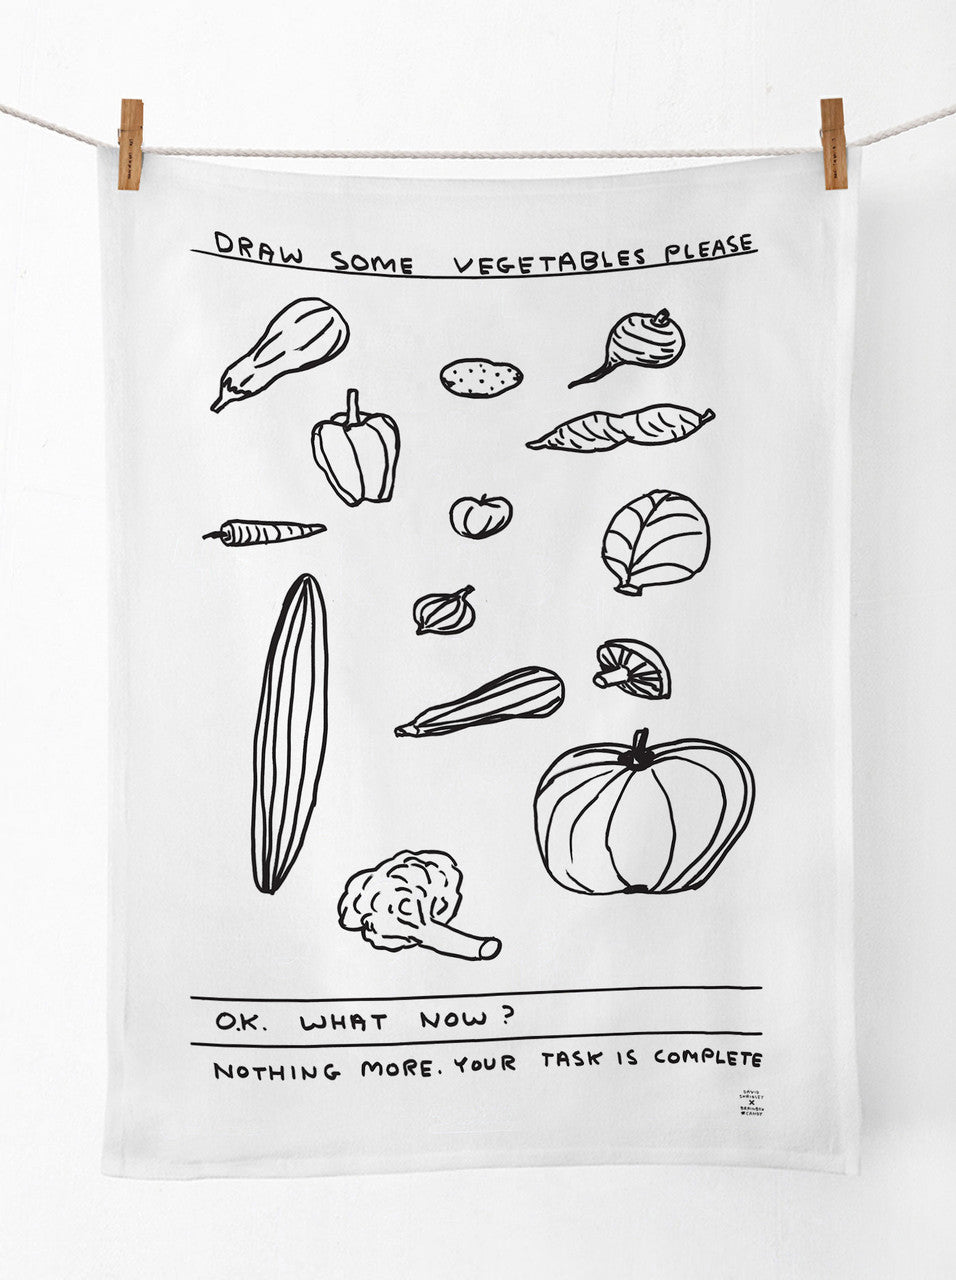 DRAW SOME VEGETABLES PLEASE
O.K. WHAT NOW?
NOTHING MORE. YOUR TASK IS COMPLETE
DAVID
SHRIGLEY
X
BRAINBOX
CANDY